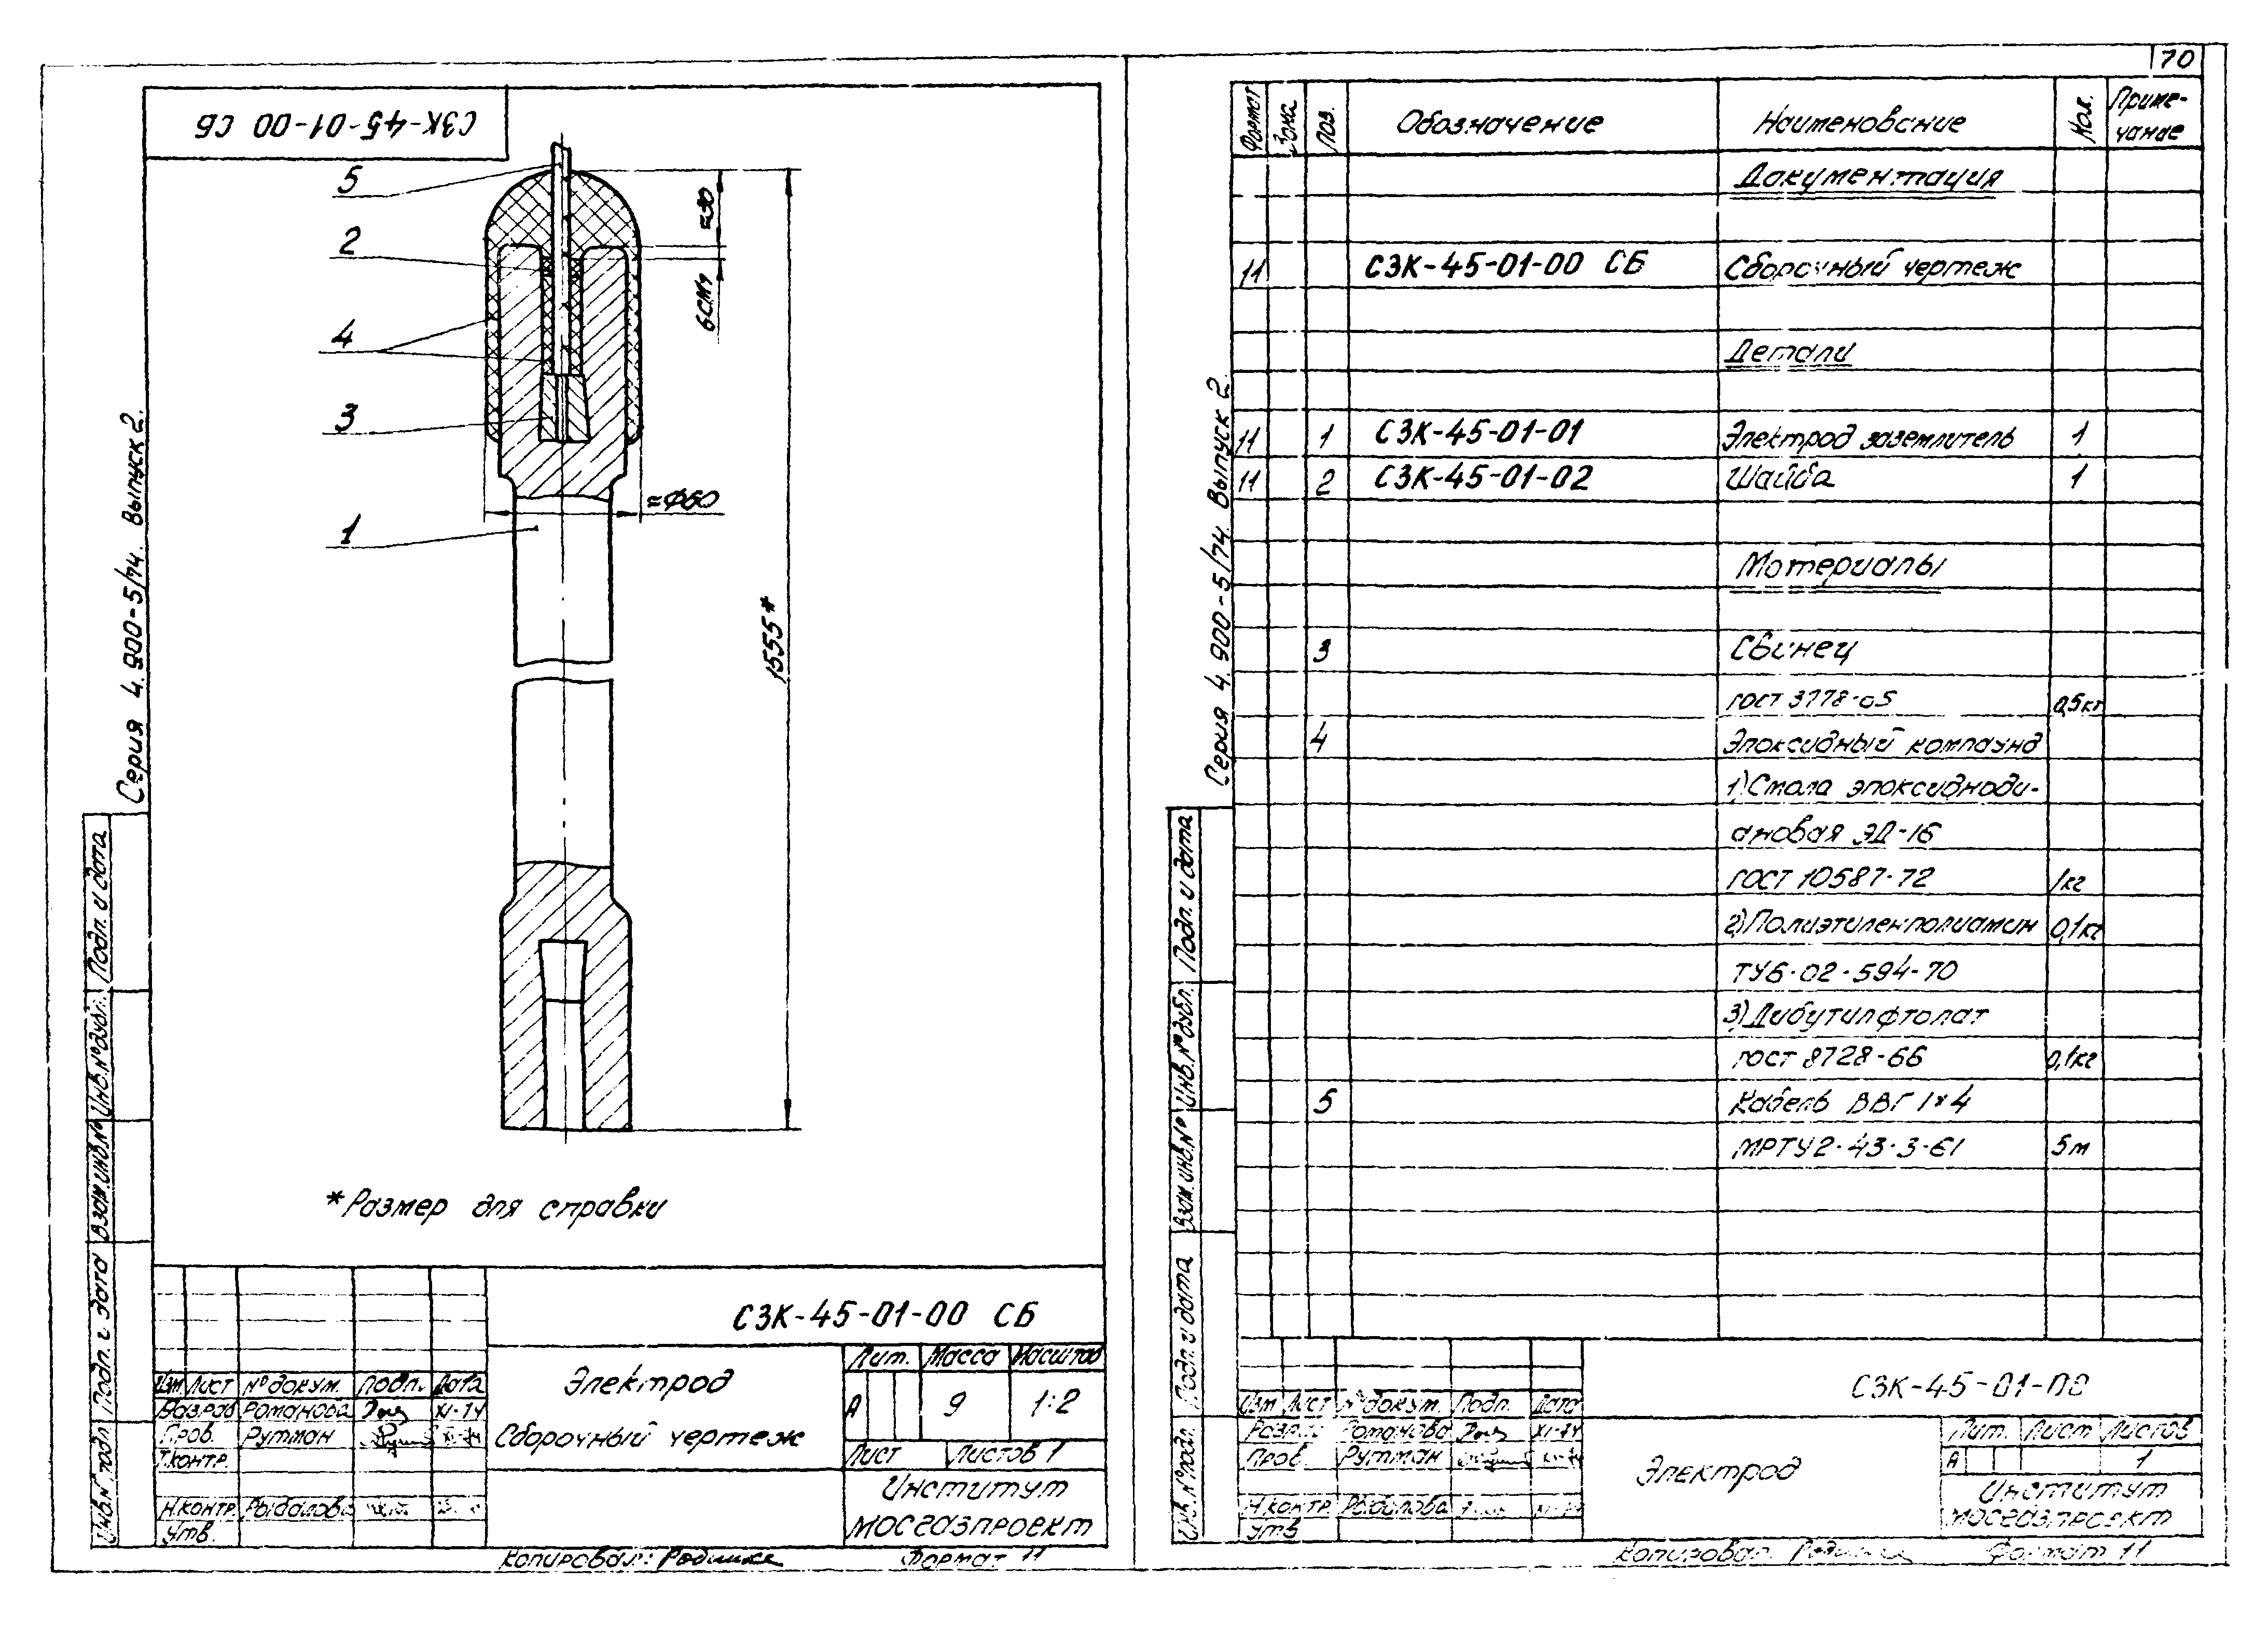 70
СЗК-45-01-00 СБ
5
2
4
3
1
≈30
≈Ø60
1555*
* Размер для справки
Серия 4.900-5/74. Выпуск 2.
Подп. и дата
Инв.№ дубл.
Взам.инв.№
Подп. и дата
Инв.№ подл.
СЗК-45-01-00 СБ
Изм Лист № докум. Подп. Дата
Разраб Романова XI-74
Пров. Рутман XI-74
Т.контр.
Н.контр. Рыбалова
Утв.
Электрод
Сборочный чертеж
Лит. Масса Масштаб
А 9 1:2
Лист Листов 1
Институт
МОСГАЗПРОЕКТ
Копировал: Формат 11
Формат Зона Поз. Обозначение Наименование Кол. Приме-
чание
Документация
11 СЗК-45-01-00 СБ Сборочный чертеж
Детали
11 1 СЗК-45-01-01 Электрод заземлитель 1
11 2 СЗК-45-01-02 Шайба 1
Материалы
3 Свинец
ГОСТ 3778-65 0,5кг
4 Эпоксидный компаунд
1) Смола эпоксидноди-
ановая ЭД-16
ГОСТ 10587-72 1кг
2) Полиэтиленполиамин 0,1кг
ТУ6-02-594-70
3) Дибутилфталат
ГОСТ 8728-66 0,1кг
5 Кабель ВВГ 1×4
МРТУ2-43-3-61 5м
Серия 4.900-5/74 Выпуск 2.
Подп. и дата
Инв.№ дубл.
Взам.инв.№
Подп. и дата
Инв.№ подл.
СЗК-45-01-00
Изм Лист № докум. Подп. Дата
Разраб. Романова XI-74
Пров. Рутман XI-74
Н.контр. Рыбалова XI-74
Утв
Электрод
Лит. Лист Листов
А 1
Институт
МОСГАЗПРОЕКТ
Копировал Формат 11